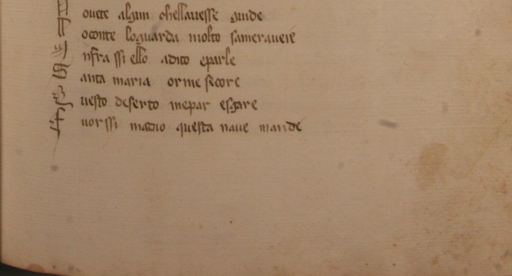 oucte algun chellauesse guide
oconte loguarda molto sameraueie
nfra ssi ello adito eparle
anta maria orme secore
uesto deserto mepar
uorssi madio questa naue mande